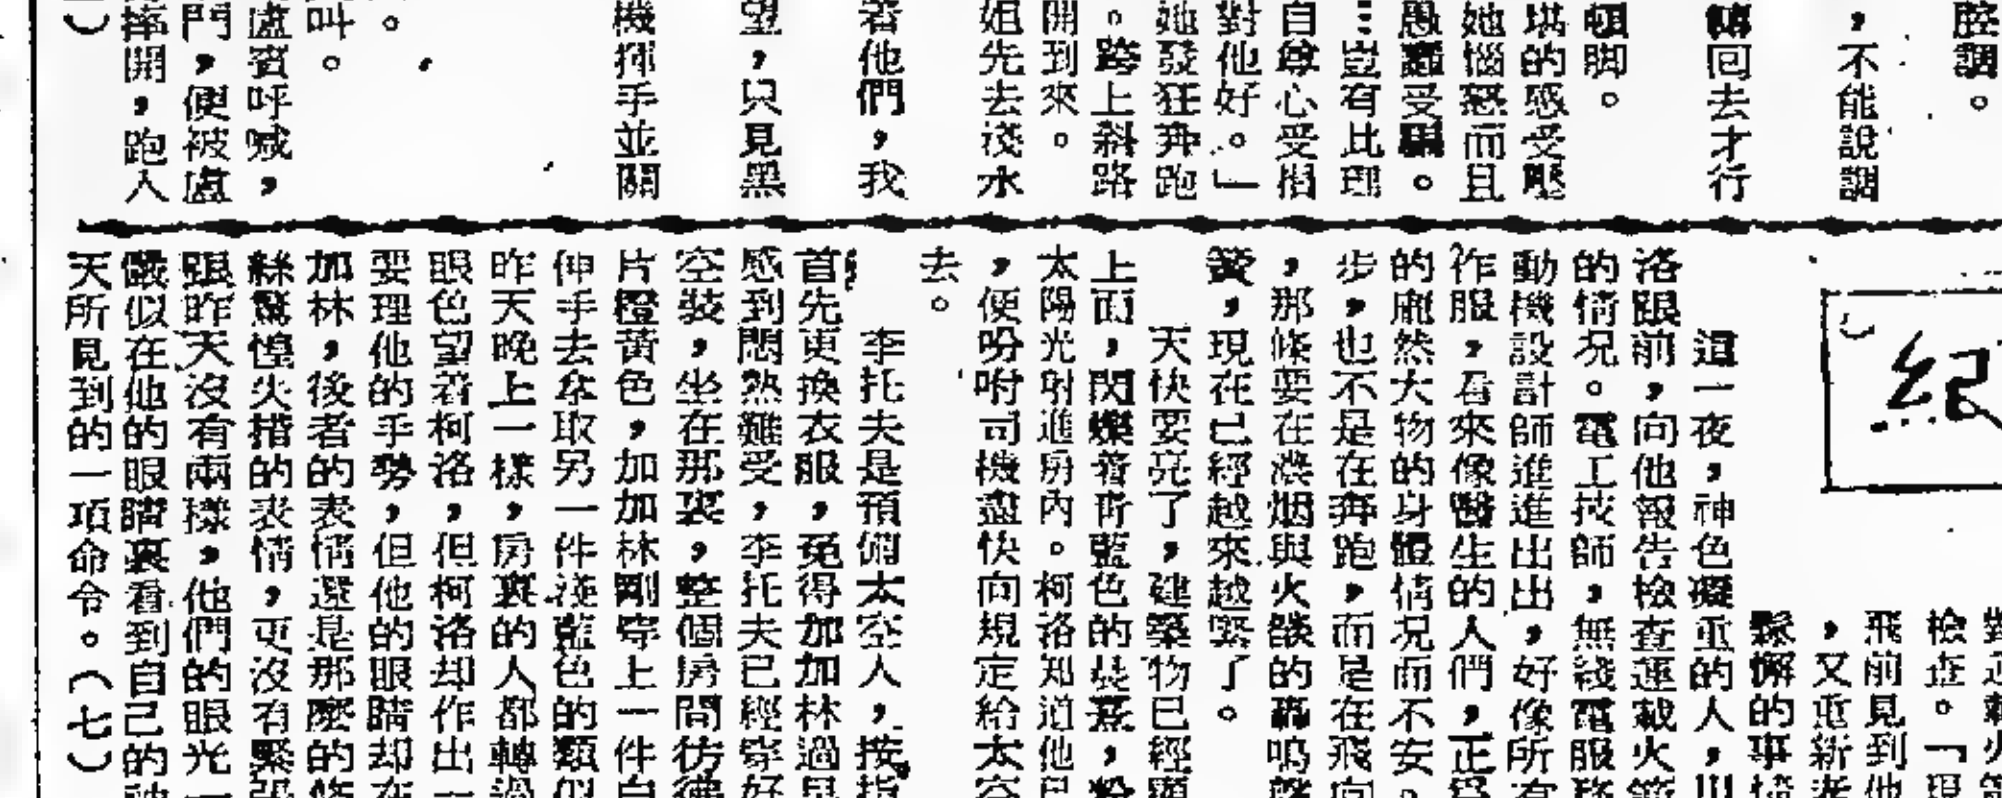 腔調。
，不能說調
回去才行
頓脚。
堪的感受壓
她惱怒而且
愚蠢受騙。
…豈有此理
自尊心受損
對他好。」
她發狂奔跑
。跨上斜路
開到來。
姐先去淺水
著他們，我
望，只見黑
機揮手並關
。
叫。
盧賓呼喊，
門，便被盧
摔開，跑入
紀
檢查。「現
飛前見到他
，又重新考
鬆懈的事情
這一夜，神色凝重的人，
洛眼前，向他報告檢查運載火箭
的情况。電工技師，無綫電服務
動機設計師進進出出，好像所有
作服，看來像醫生的人們，正爲
的龐然大物的身體情况而不安。
步，也不是在奔跑，而是在飛向
，那條要在濃烟與火燄的轟鳴聲
，現在已經越來越緊了。
天快要亮了，建築物已經顯
上面，閃爍着青藍色的晨霧，
太陽光射進房內。柯洛知道他已
，便吩咐司機盡快向規定給太空
去。
李托夫是預備太空人，按指
首先更換衣服，免得加加林過早
感到悶熱難受，李托夫已經穿好
空裝，坐在那裏，整個房間彷彿
片橙黃色，加加林剛穿上一件白
伸手去拿取另一件淺藍色的類似
昨天晚上一樣，房裏的人都轉過
眼色望着柯洛，但柯洛却作出一
要理他的手勢，但他的眼睛却在
加林，後者的表情還是那麽的
絲驚惶失措的表情，更沒有緊張
跟昨天沒有兩樣，他們的眼光一
儼似在他的眼睛裏看到自己的
天所見到的一項命令。（七）